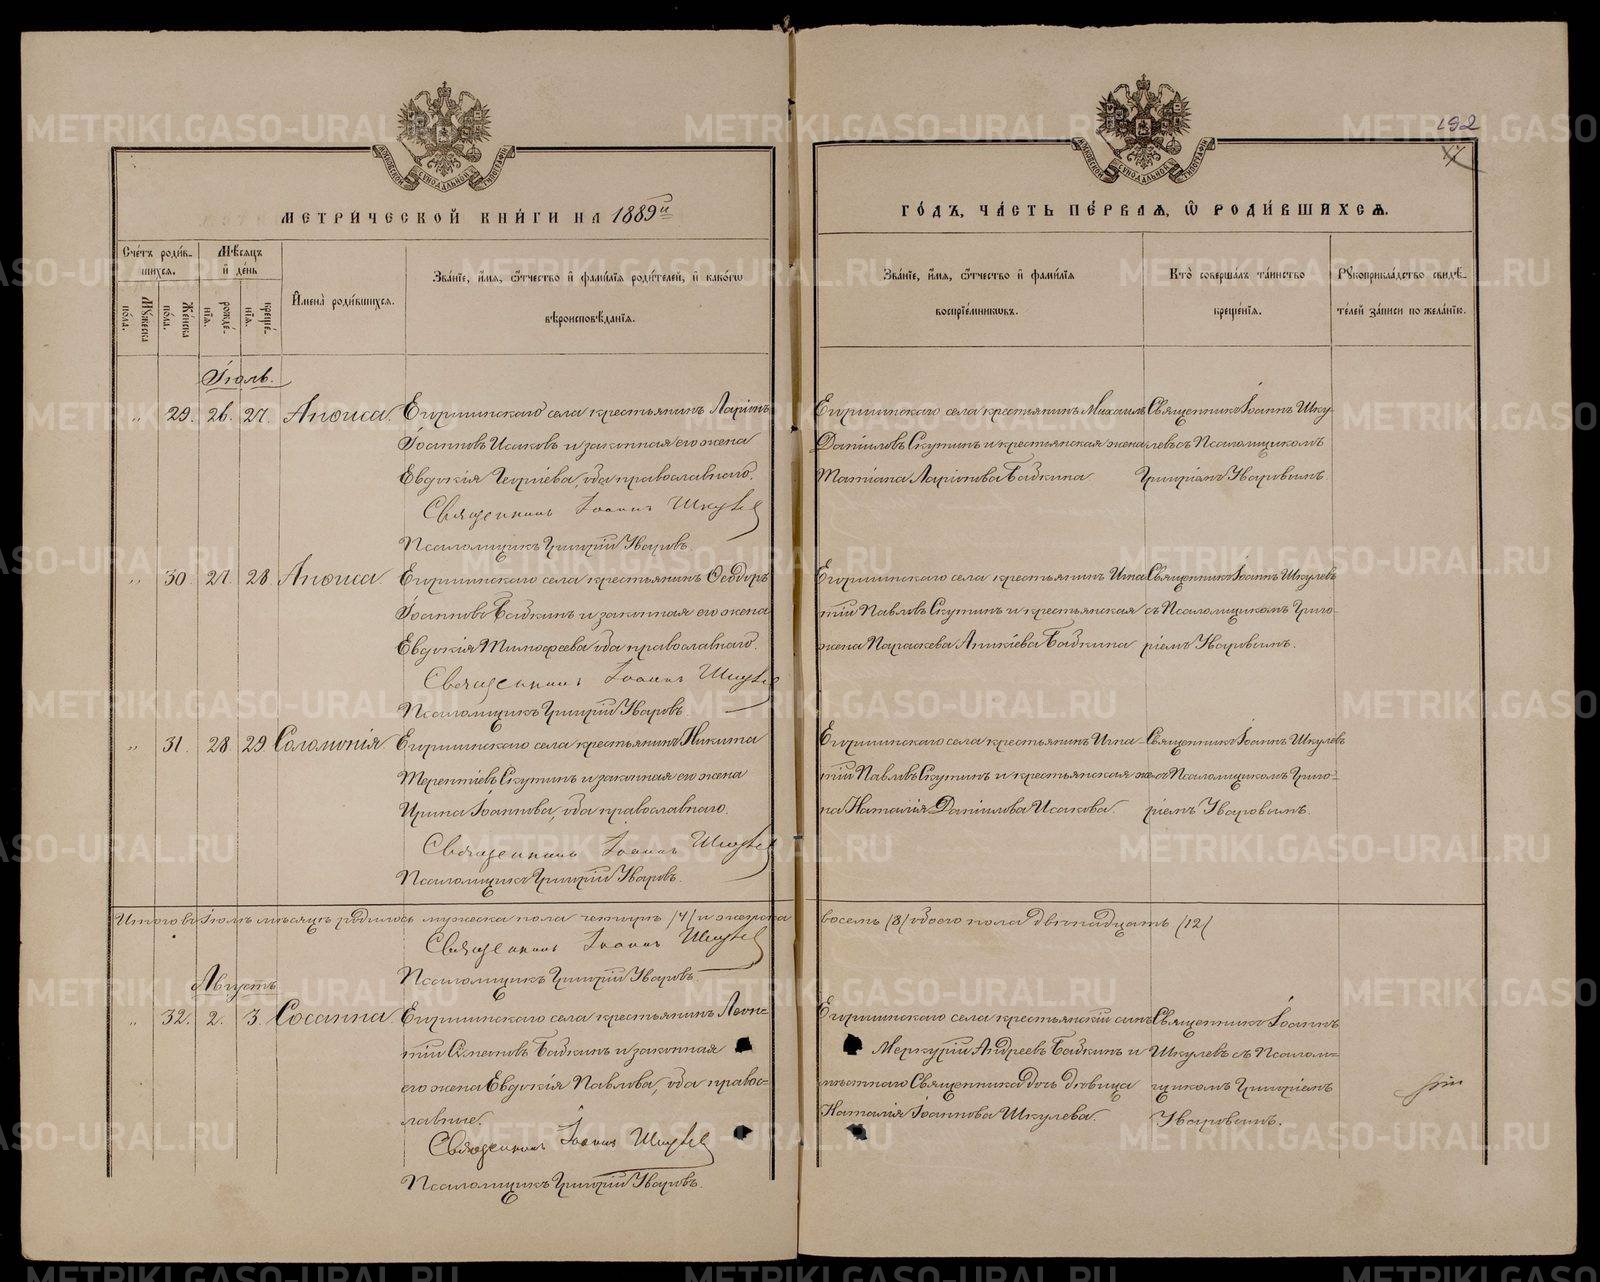 192
МЕТРИЧЕСКОЙ КНИГИ НА 1889й
ГОДЪ, ЧАСТЬ ПЕРВАЯ, Ѡ РОДИВШИХСЯ.
Счетъ родившихся.
Мужеска пола.
Женска пола.
Мѣсяцъ и день
рожденія.
крещенія.
Имена родившихся.
Званіе, имя, отчество и фамилія родителей, и какогѡ
вѣроисповѣданія.
Званіе, имя, отчество и фамилія
воспріемникѡвъ.
Кто совершалъ таинство
крещенія.
Рукоприкладство свидѣ-
телей записи по желанію.
Іюль.
„ 29. 26. 27. Анѳиса.
Егоршинскаго села крестьянинъ Ларіонъ
Іоанновъ Исаковъ и законная его жена
Евдокія Георгіева, оба православнаго.
Священникъ Іоаннъ Шкулевъ
Псаломщикъ Григорій Уваровъ.
Егоршинскаго села крестьянинъ Михаилъ
Даніиловъ Скутинъ и крестьянская жена
Татіана Ларіонова Бабкина
Священникъ Іоаннъ Шку-
левъ съ Псаломщикомъ
Григоріемъ Уваровымъ.
„ 30. 27. 28. Анѳиса
Егоршинскаго села крестьянинъ Ѳеодоръ
Іоанновъ Бабкинъ и законная его жена
Евдокія Тимоѳеева, оба православнаго.
Священникъ Іоаннъ Шкулевъ
Псаломщикъ Григорій Уваровъ.
Егоршинскаго села крестьянинъ Игна
тій Павловъ Скутинъ и крестьянская
жена Параскева Аникіева Бабкина
Священникъ Іоаннъ Шкулевъ
съ Псаломщикомъ Григо-
ріемъ Уваровымъ.
„ 31. 28. 29. Соломонія.
Егоршинскаго села крестьянинъ Никита
Терентіевъ Скутинъ и законная его жена
Ирина Іоаннова, оба православнаго.
Священникъ Іоаннъ Шкулевъ
Псаломщикъ Григорій Уваровъ.
Егоршинскаго села крестьянинъ Игна-
тій Павловъ Скутинъ и крестьянская же
на Наталія Даніилова Исакова.
Священникъ Іоаннъ Шкулевъ
съ Псаломщикомъ Григо-
ріемъ Уваровымъ.
Итого въ Іюлѣ мѣсяцѣ родилось мужеска пола четыре /4/ и женска восемь /8/ обоего пола двѣнадцать /12/
Священникъ Іоаннъ Шкулевъ
Псаломщикъ Григорій Уваровъ.
Августъ
„ 32. 2. 3. Сосанна
Егоршинскаго села крестьянинъ Леон-
тій Семеновъ Бабкинъ и законная
его жена Евдокія Павлова, оба правос-
лавные.
Священникъ Іоаннъ Шкулевъ
Псаломщикъ Григорій Уваровъ.
Егоршинскаго села крестьянскій сынъ
Меркурій Андреевъ Бабкинъ и
мѣстнаго Священника дочь дѣвица
Наталія Іоаннова Шкулева.
Священникъ Іоаннъ
Шкулевъ съ Псалом-
щикомъ Григоріемъ
Уваровымъ.
METRIKI.GASO-URAL.RU